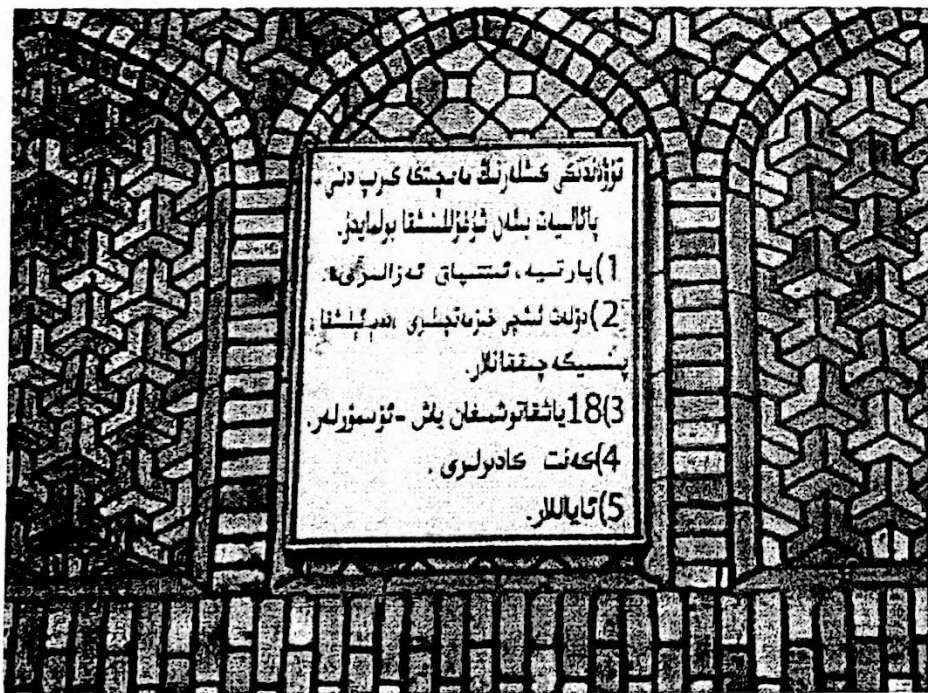 تۆۋەندىكى كىشلەرنىڭ مەسچىتكە كىرىپ دىنى
پائالىيەت بىلەن شۇغۇللىنىشقا بولمايدۇ.
1)پارتىيە، ئىتتىپاق ئەزالىرى
2)دۆلەت ئىشچى خىزمەتچىلىرى
پىنسىيگە چىققانلار.
3)18ياشقاتوشمىغان ياش -ئۆسمۈرلەر.
4)كەنت كادىرلىرى .
5)ئاياللار.